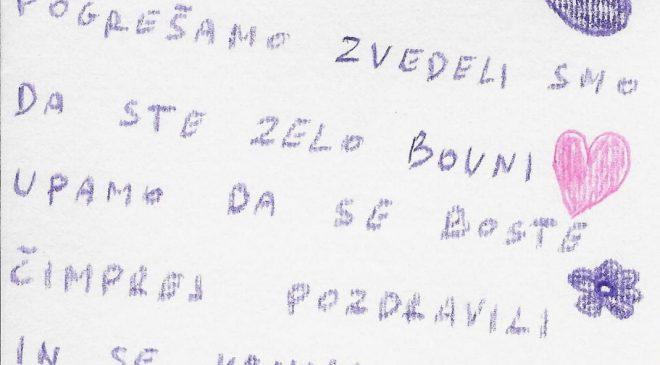 POGREŠAMO ZVEDELI SMO
DA STE ZELO BOVNI
UPAMO DA SE BOSTE
ČIMPREJ POZDRAVILI
IN SE